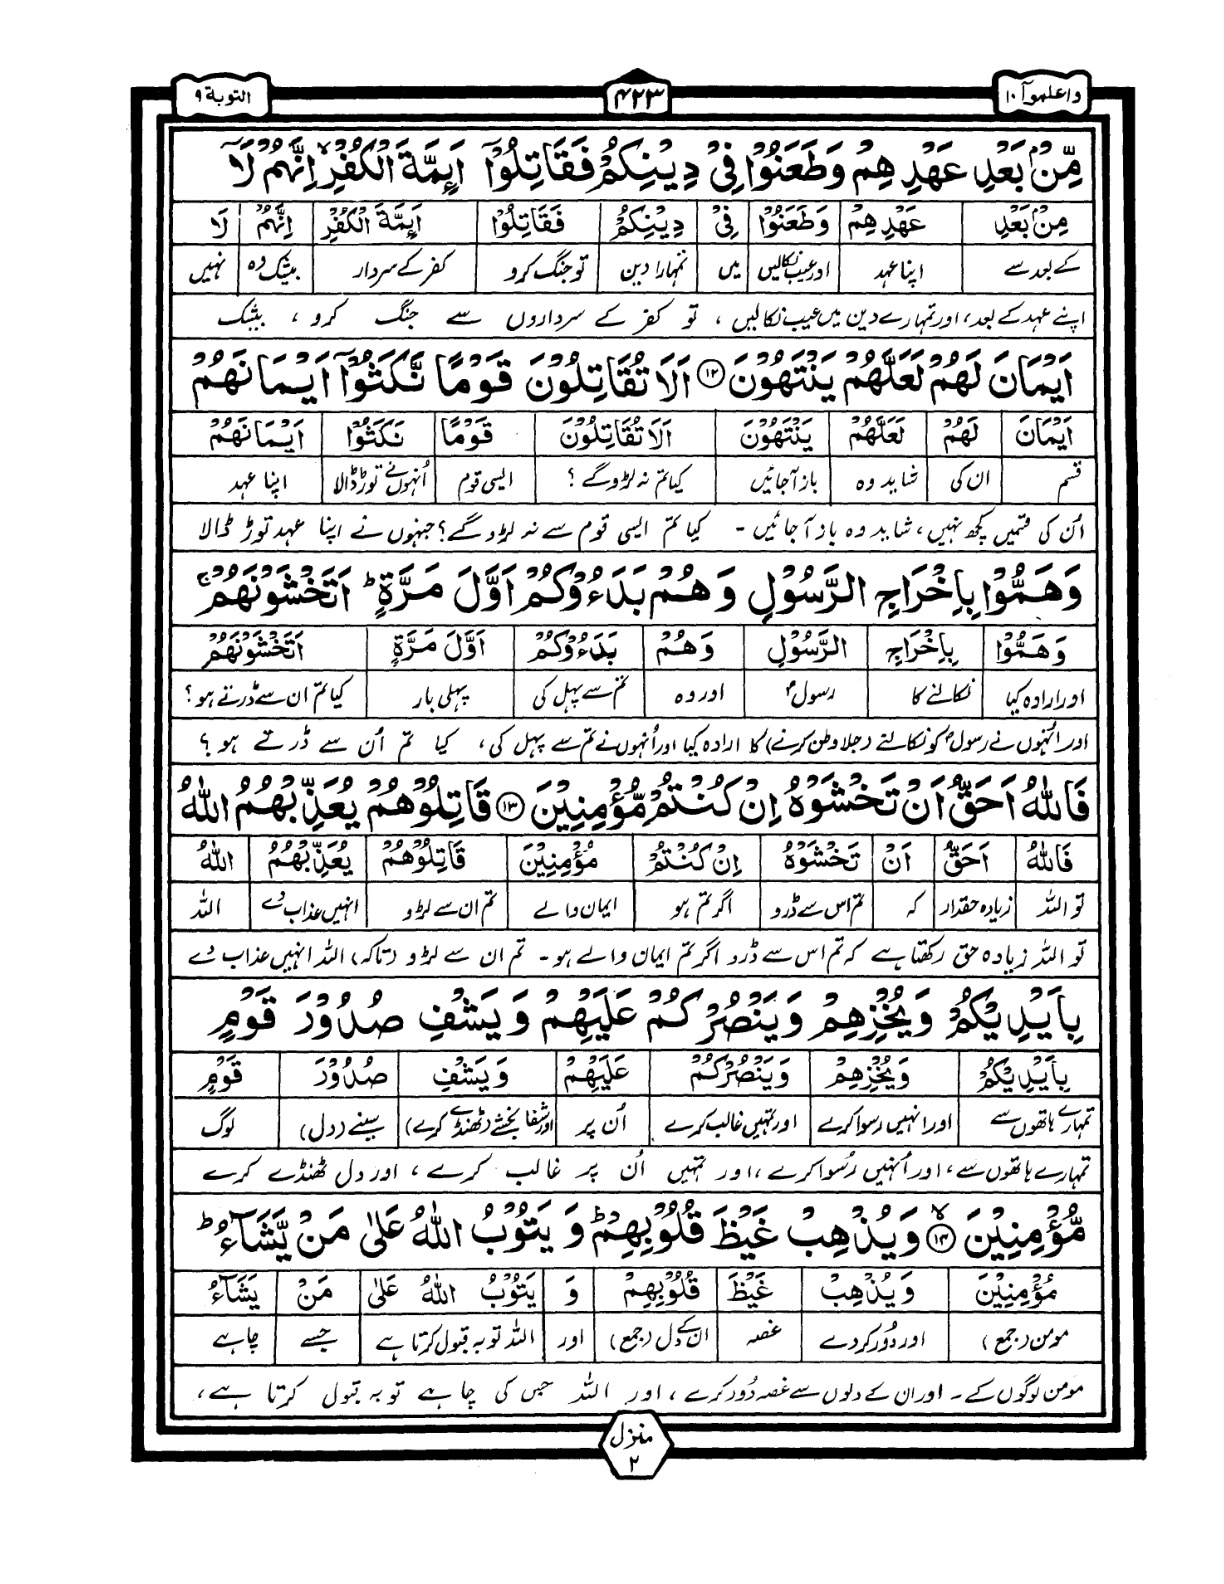 واعلموآ ١٠ ۴۲۳ التوبة ٩
مِّنْۢ بَعْدِ عَهْدِهِمْ وَطَعَنُوْا فِيْ دِيْنِكُمْ فَقَاتِلُوْٓا اَىِٕمَّةَ الْكُفْرِ ۙ اِنَّهُمْ لَآ
مِنْۢ بَعْدِ عَهْدِهِمْ وَطَعَنُوْا فِيْ دِيْنِكُمْ فَقَاتِلُوْٓا اَىِٕمَّةَ الْكُفْرِ اِنَّهُمْ لَا
کے بعد سے اپنا عہد اور عیب نکالیں میں تمہارا دین تو جنگ کرو کفر کے سردار بیشک وہ نہیں
اپنے عہد کے بعد، اور تمہارے دین میں عیب نکالیں، تو کفر کے سرداروں سے جنگ کرو، بیشک
اَيْمَانَ لَهُمْ لَعَلَّهُمْ يَنْتَهُوْنَ ۝١٢ اَلَا تُقَاتِلُوْنَ قَوْمًا نَّكَثُوْٓا اَيْمَانَهُمْ
اَيْمَانَ لَهُمْ لَعَلَّهُمْ يَنْتَهُوْنَ اَلَا تُقَاتِلُوْنَ قَوْمًا نَكَثُوْٓا اَيْمَانَهُمْ
قسم ان کی شاید وہ باز آجائیں کیا تم نہ لڑوگے؟ ایسی قوم اُنہوں نے توڑ ڈالا اپنا عہد
اُن کی قسمیں کچھ نہیں، شاید وہ باز آجائیں - کیا تم ایسی قوم سے نہ لڑوگے؟ جنہوں نے اپنا عہد توڑ ڈالا
وَهَمُّوْا بِاِخْرَاجِ الرَّسُوْلِ وَهُمْ بَدَءُوْكُمْ اَوَّلَ مَرَّةٍ ؕ اَتَخْشَوْنَهُمْ ۚ
وَهَمُّوْا بِاِخْرَاجِ الرَّسُوْلِ وَهُمْ بَدَءُوْكُمْ اَوَّلَ مَرَّةٍ اَتَخْشَوْنَهُمْ
اور ارادہ کیا نکالنے کا رسولؐ اور وہ تم سے پہل کی پہلی بار کیا تم ان سے ڈرتے ہو؟
اور انہوں نے رسولؐ کو نکالنے (جلا وطن کرنے) کا ارادہ کیا اور اُنہوں نے تم سے پہل کی، کیا تم اُن سے ڈرتے ہو؟
فَاللّٰهُ اَحَقُّ اَنْ تَخْشَوْهُ اِنْ كُنْتُمْ مُّؤْمِنِيْنَ ۝١٣ قَاتِلُوْهُمْ يُعَذِّبْهُمُ اللّٰهُ
فَاللّٰهُ اَحَقُّ اَنْ تَخْشَوْهُ اِنْ كُنْتُمْ مُؤْمِنِيْنَ قَاتِلُوْهُمْ يُعَذِّبْهُمُ اللّٰهُ
تو اللہ زیادہ حقدار کہ تم اس سے ڈرو اگر تم ہو ایمان والے تم ان سے لڑو انہیں عذاب دے اللہ
تو اللہ زیادہ حق رکھتا ہے کہ تم اس سے ڈرو اگر تم ایمان والے ہو - تم ان سے لڑو (تاکہ) اللہ انہیں عذاب دے
بِاَيْدِيْكُمْ وَيُخْزِهِمْ وَيَنْصُرْكُمْ عَلَيْهِمْ وَيَشْفِ صُدُوْرَ قَوْمٍ
بِاَيْدِيْكُمْ وَيُخْزِهِمْ وَيَنْصُرْكُمْ عَلَيْهِمْ وَيَشْفِ صُدُوْرَ قَوْمٍ
تمہارے ہاتھوں سے اور انہیں رسوا کرے اور تمہیں غالب کرے اُن پر اور شفا بخشے (ٹھنڈے کرے) سینے (دل) لوگ
تمہارے ہاتھوں سے، اور اُنہیں رُسوا کرے، اور تمہیں اُن پر غالب کرے، اور دل ٹھنڈے کرے
مُّؤْمِنِيْنَ ۝١٤ۙ وَيُذْهِبْ غَيْظَ قُلُوْبِهِمْ ؕ وَيَتُوْبُ اللّٰهُ عَلٰى مَنْ يَّشَآءُ ؕ
مُؤْمِنِيْنَ وَيُذْهِبْ غَيْظَ قُلُوْبِهِمْ وَ يَتُوْبُ اللّٰهُ عَلٰى مَنْ يَشَآءُ
مومن (جمع) اور دُور کردے غصہ ان کے دل (جمع) اور اللہ توبہ قبول کرتا ہے جسے چاہے
مومن لوگوں کے - اور ان کے دلوں سے غصہ دُور کرے، اور اللہ جس کی چاہے توبہ قبول کرتا ہے،
منزل ۲